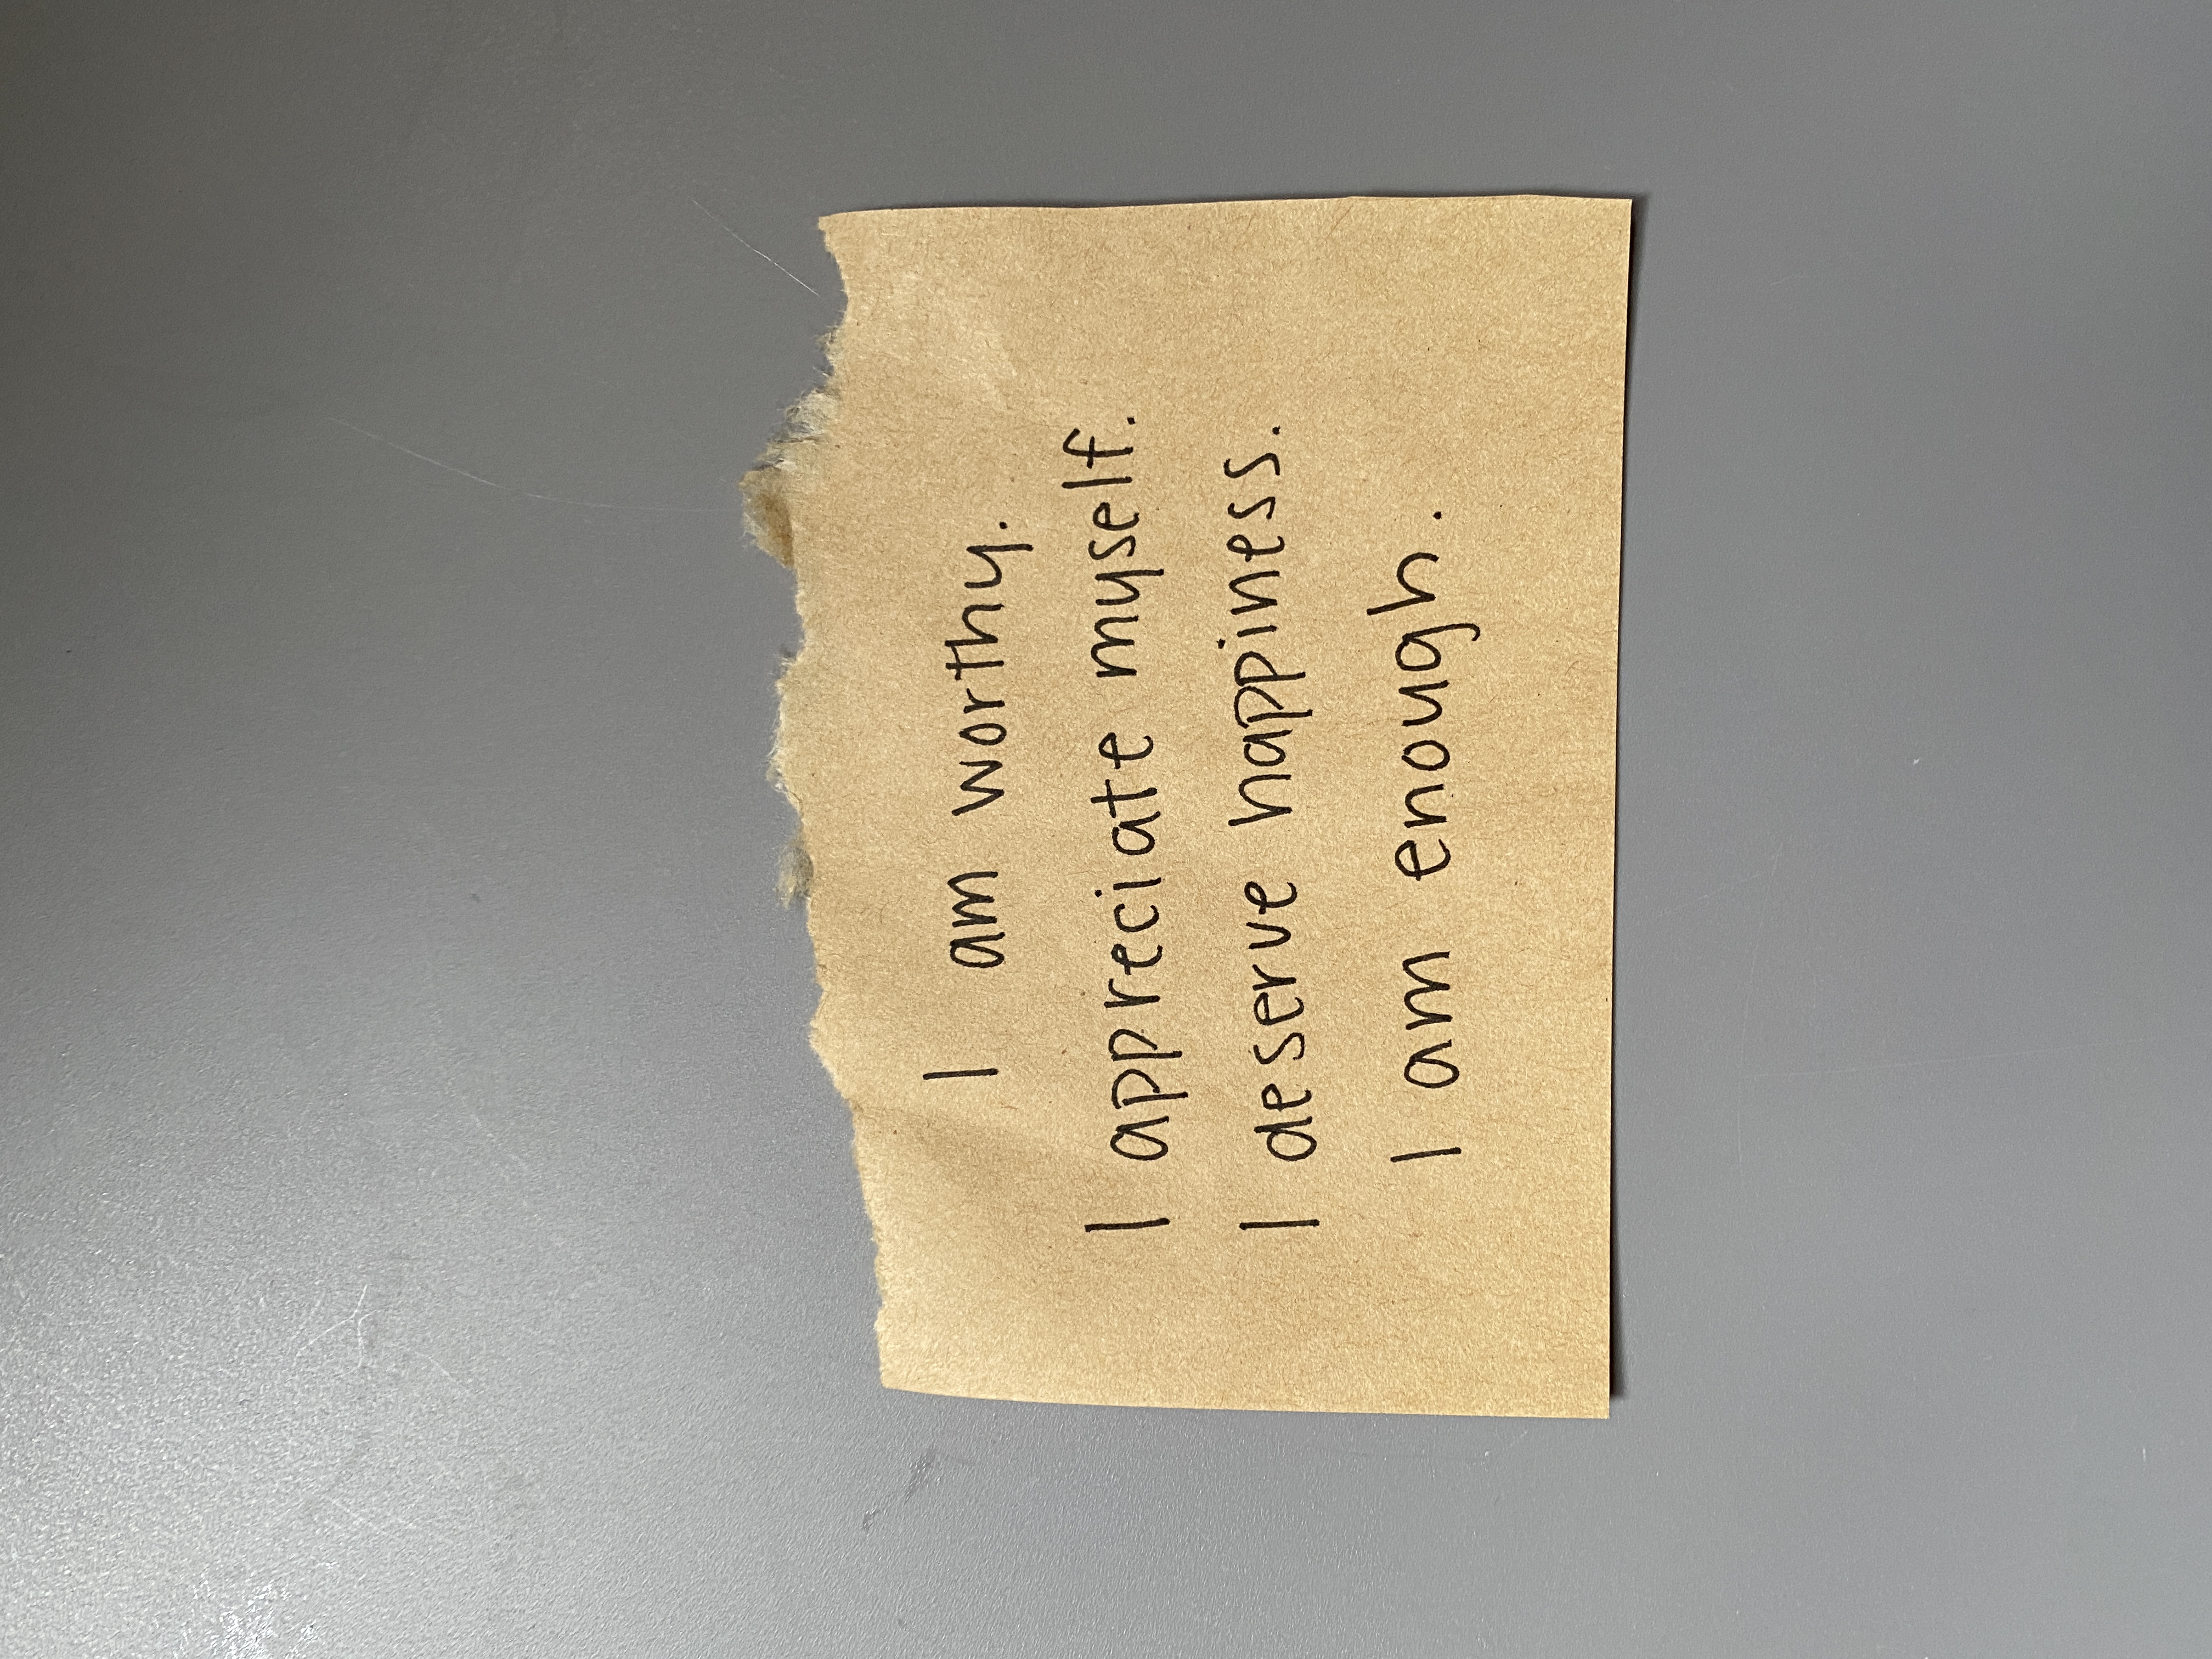 I am worthy.
I appreciate myself.
I deserve happiness.
I am enough.